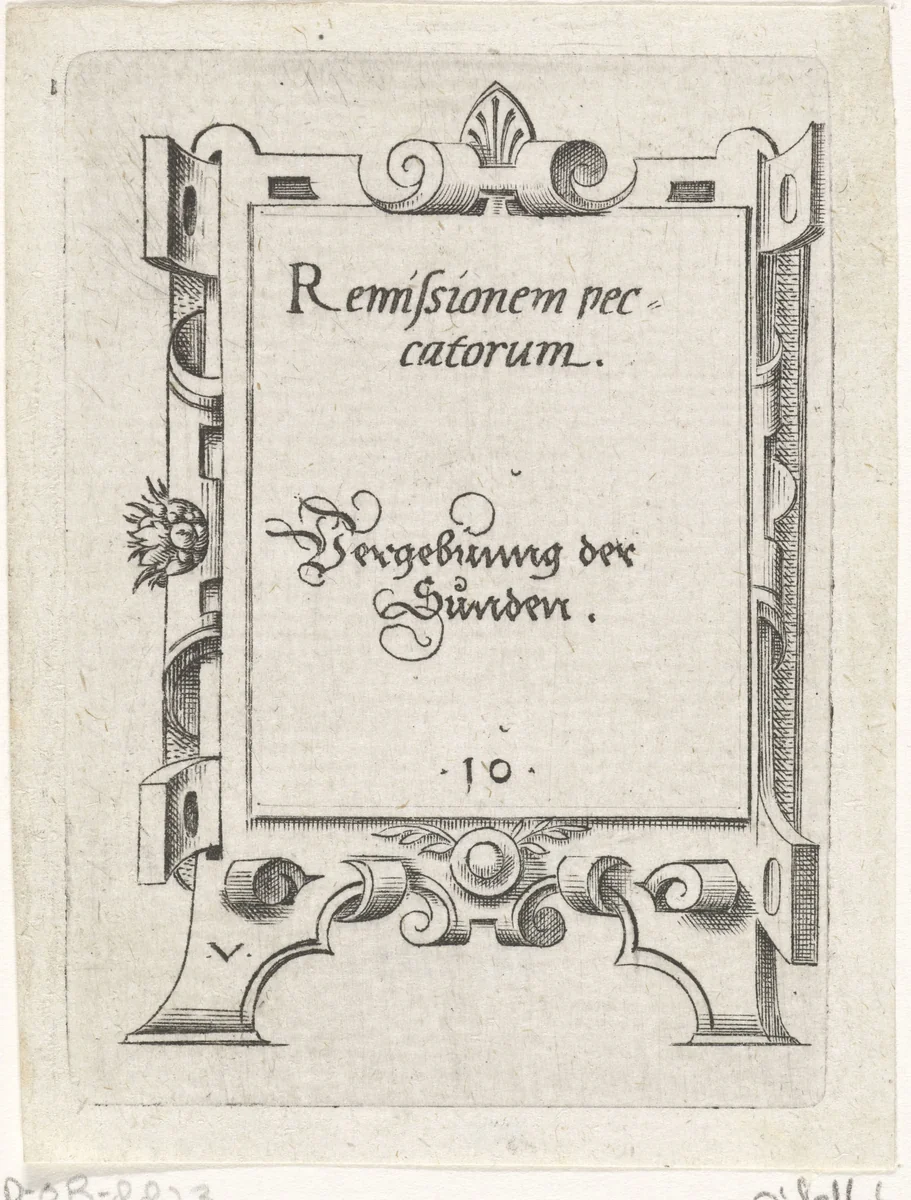 Remiſsionem pec⸗
catorum.
Vergebŭnng der
Sůnden.
·10·
·V·